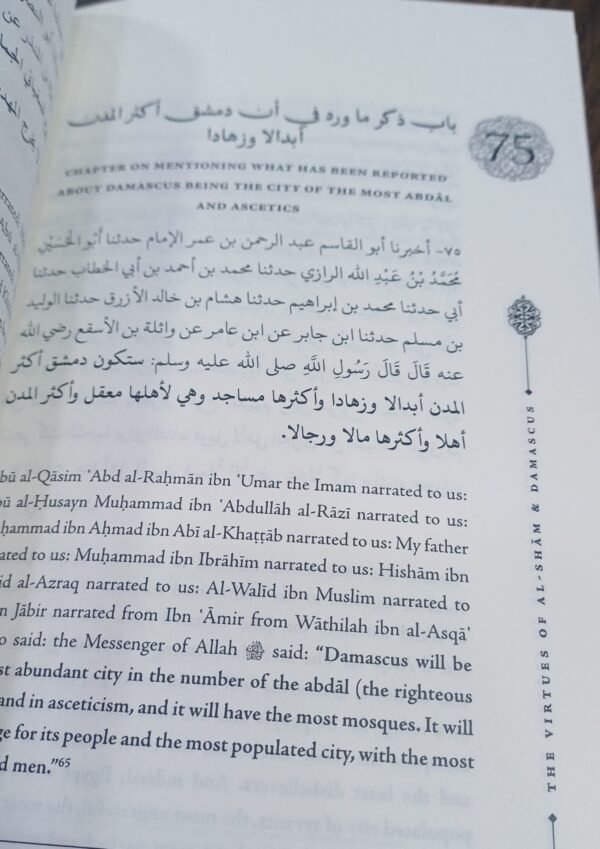 باب ذكر ما ورد في أن دمشق أكثر المدن
أبدالا وزهادا
75
CHAPTER ON MENTIONING WHAT HAS BEEN REPORTED
ABOUT DAMASCUS BEING THE CITY OF THE MOST ABDĀL
AND ASCETICS
٧٥- أخبرنا أبو القاسم عبد الرحمن بن عمر الإمام حدثنا أَبُو الْحُسَيْنِ
مُحَمَّدُ بْنُ عَبْدِ الله الرازي حدثنا محمد بن أحمد بن أبي الخطاب حدثنا
أبي حدثنا محمد بن إبراهيم حدثنا هشام بن خالد الأزرق حدثنا الوليد
بن مسلم حدثنا ابن جابر عن ابن عامر عن واثلة بن الأسقع رضي الله
عنه قَالَ قَالَ رَسُولِ اللَّهِ صلى الله عليه وسلم: ستكون دمشق أكثر
المدن أبدالا وزهادا وأكثرها مساجد وهي لأهلها معقل وأكثر المدن
أهلا وأكثرها مالا ورجالا.
bū al-Qāsim ʿAbd al-Raḥmān ibn ʿUmar the Imam narrated to us:
ū al-Ḥusayn Muḥammad ibn ʿAbdullāh al-Rāzī narrated to us:
ḥammad ibn Aḥmad ibn Abī al-Khaṭṭāb narrated to us: My father
ated to us: Muḥammad ibn Ibrāhīm narrated to us: Hishām ibn
id al-Azraq narrated to us: Al-Walīd ibn Muslim narrated to
n Jābir narrated from Ibn ʿĀmir from Wāthilah ibn al-Asqāʿ
o said: the Messenger of Allah ﷺ said: “Damascus will be
st abundant city in the number of the abdāl (the righteous
and in asceticism, and it will have the most mosques. It will
ge for its people and the most populated city, with the most
d men.”65
THE VIRTUES OF AL-SHĀM & DAMASCUS